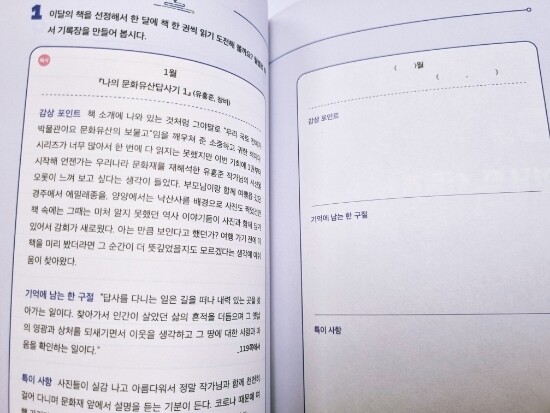 1 이달의 책을 선정해서 한 달에 책 한 권씩 읽기 도전해 볼까요?
서 기록장을 만들어 봅시다.
예시
1월
『나의 문화유산답사기 1』 (유홍준, 창비)
감상 포인트 책 소개에 나와 있는 것처럼 그야말로 "우리 국토
박물관이요 문화유산의 보물고"임을 깨우쳐 준 소중하고 귀한
시리즈가 너무 많아서 한 번에 다 읽지는 못했지만 이번 기회에 1권부터
시작해 언젠가는 우리나라 문화재를 재해석한 유홍준 작가님의 시선을
오롯이 느껴 보고 싶다는 생각이 들었다. 부모님이랑 함께 여행을
경주에서 에밀레종을, 양양에서는 낙산사를 배경으로 사진도 찍었는데
책 속에는 그때는 미처 알지 못했던 역사 이야기들이 사진과 함께 담겨
있어서 감회가 새로웠다. 아는 만큼 보인다고 했던가? 여행 가기 전에 이
책을 미리 봤더라면 그 순간이 더 뜻깊었을지도 모르겠다는 생각에 아쉬
움이 찾아왔다.
기억에 남는 한 구절 "답사를 다니는 일은 길을 떠나 내력 있는 곳을 찾
아가는 일이다. 찾아가서 인간이 살았던 삶의 흔적을 더듬으며 그 옛날
의 영광과 상처를 되새기면서 이웃을 생각하고 그 땅에 대한 사랑과 미
움을 확인하는 일이다."
_119쪽에서
특이 사항 사진들이 실감 나고 아름다워서 정말 작가님과 함께 천천히
걸어 다니며 문화재 앞에서 설명을 듣는 기분이 든다. 코로나 때문에
( )월
( , )
감상 포인트
기억에 남는 한 구절
특이 사항